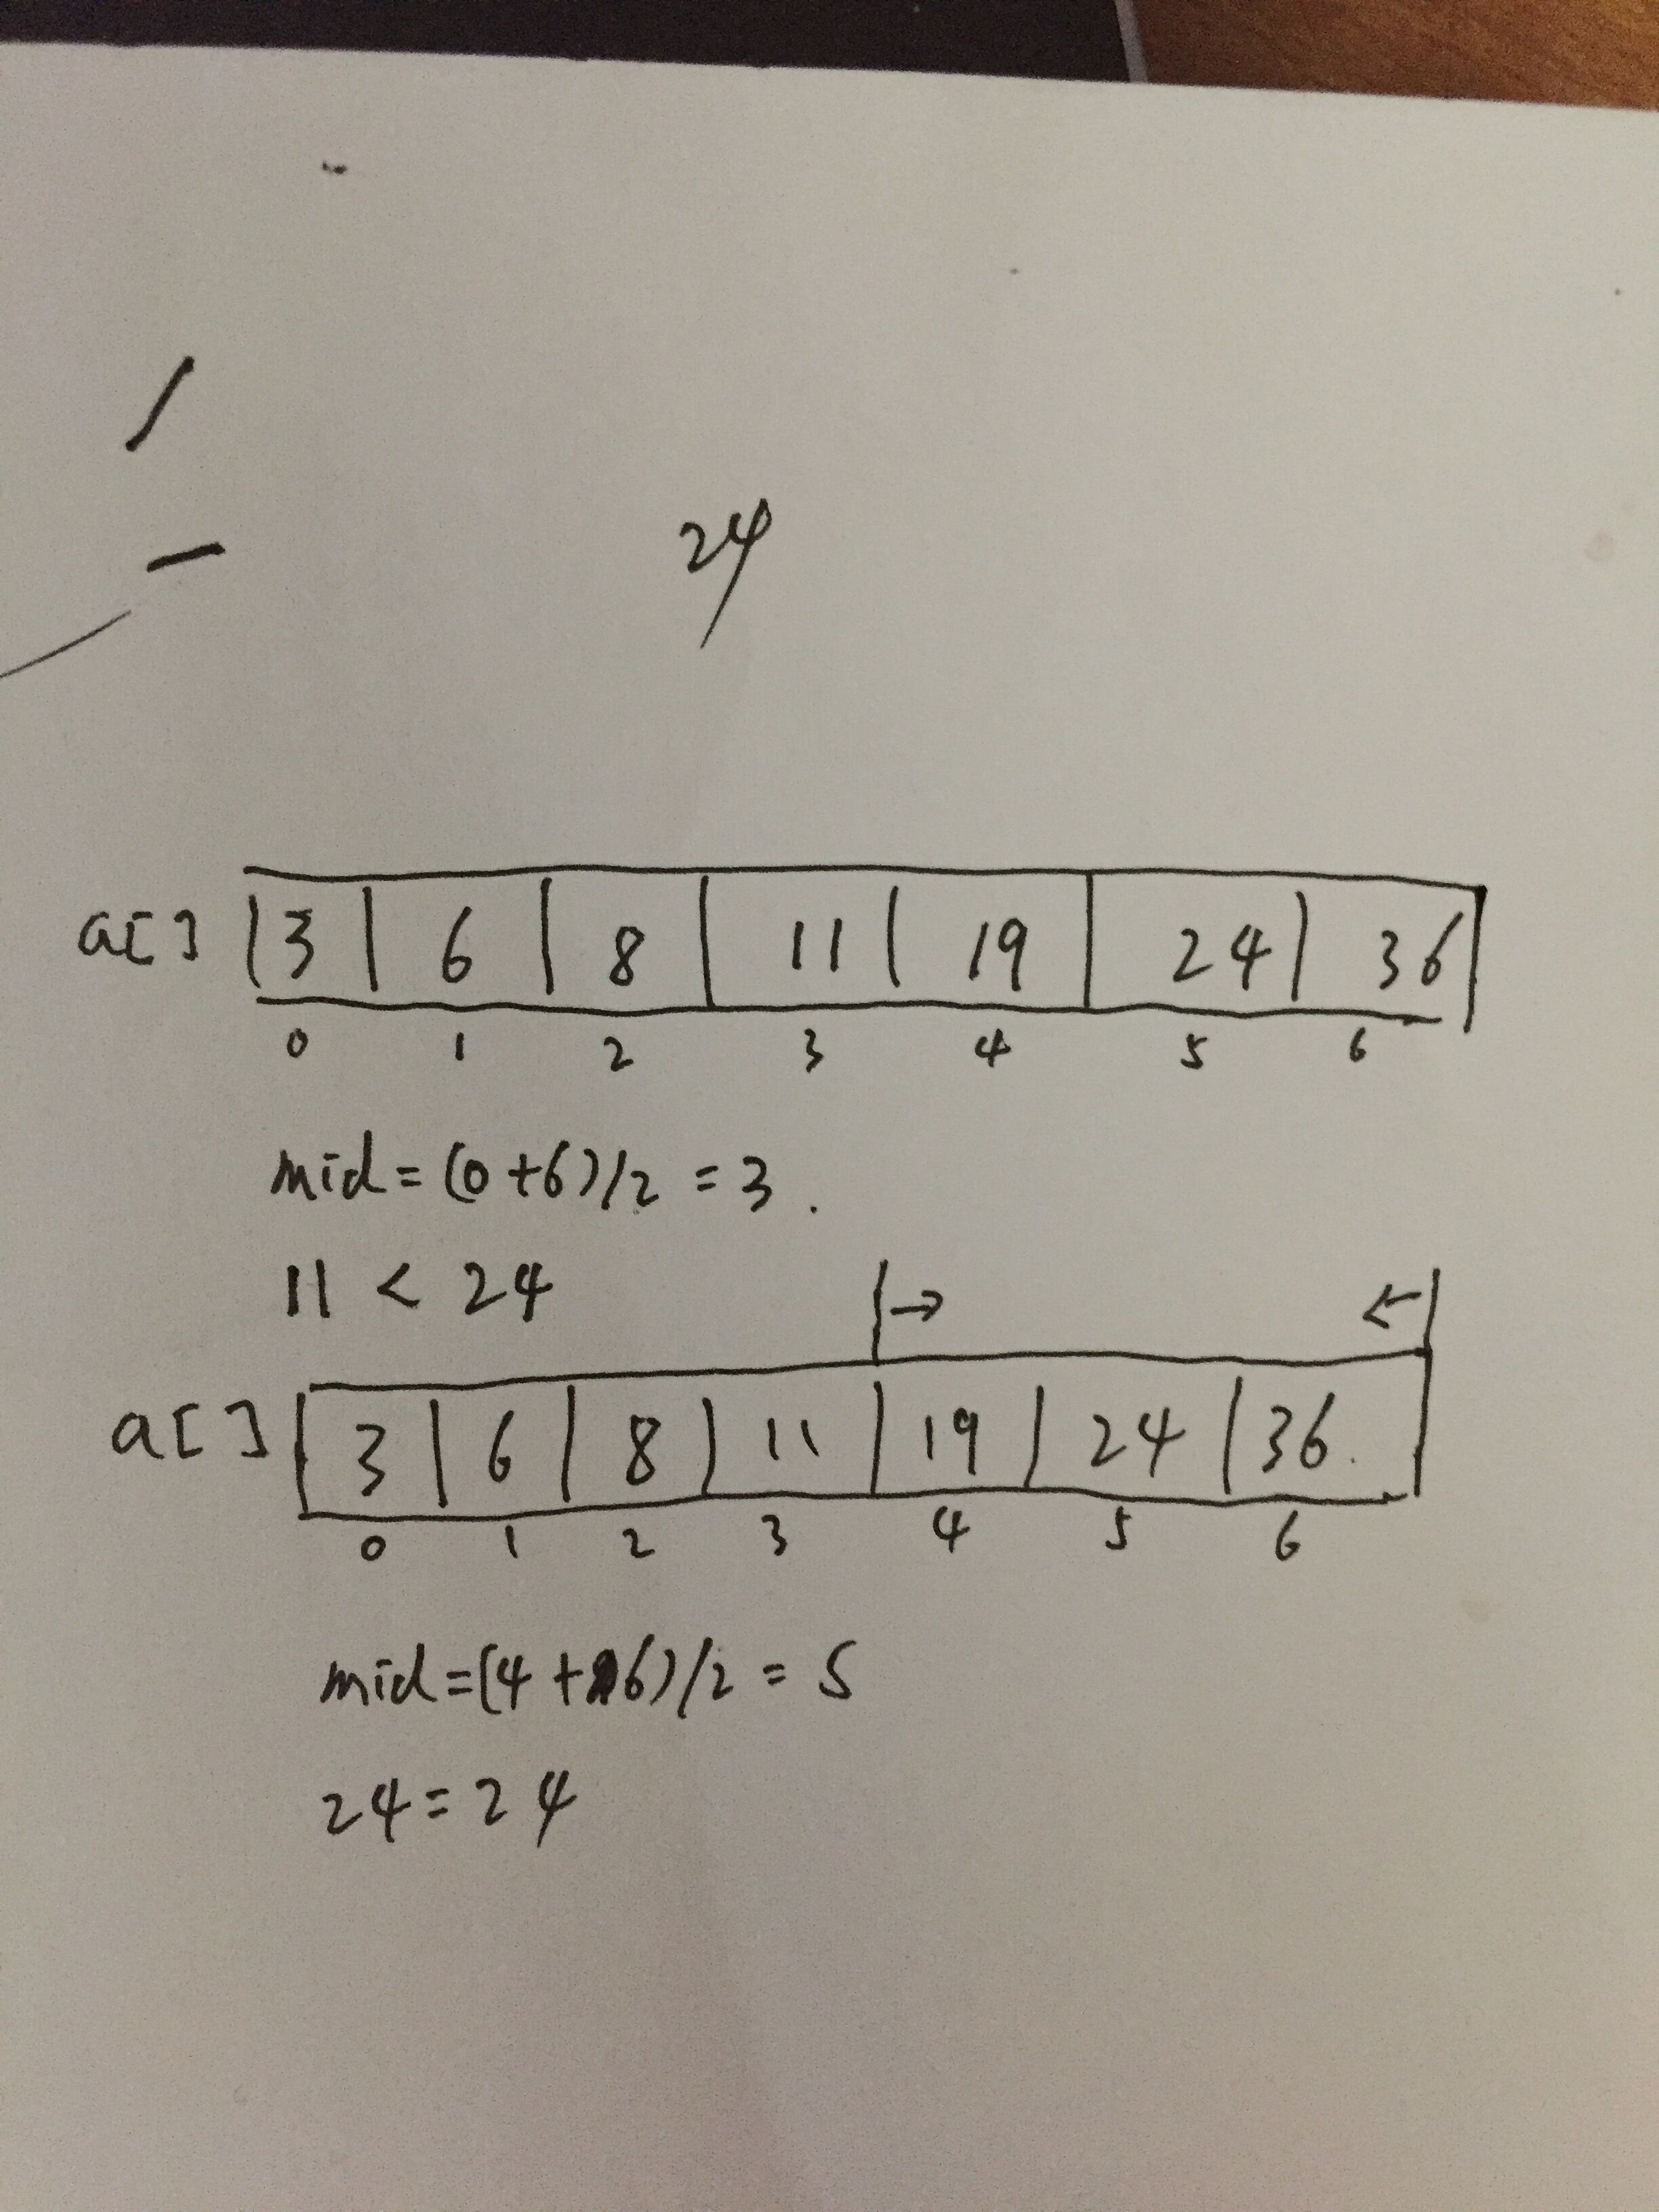 24
a[] 3 6 8 11 19 24 36
0 1 2 3 4 5 6
mid=(0+6)/2=3.
11 < 24
→ ←
a[] 3 6 8 11 19 24 36
0 1 2 3 4 5 6
mid=(4+6)/2=5
24=24